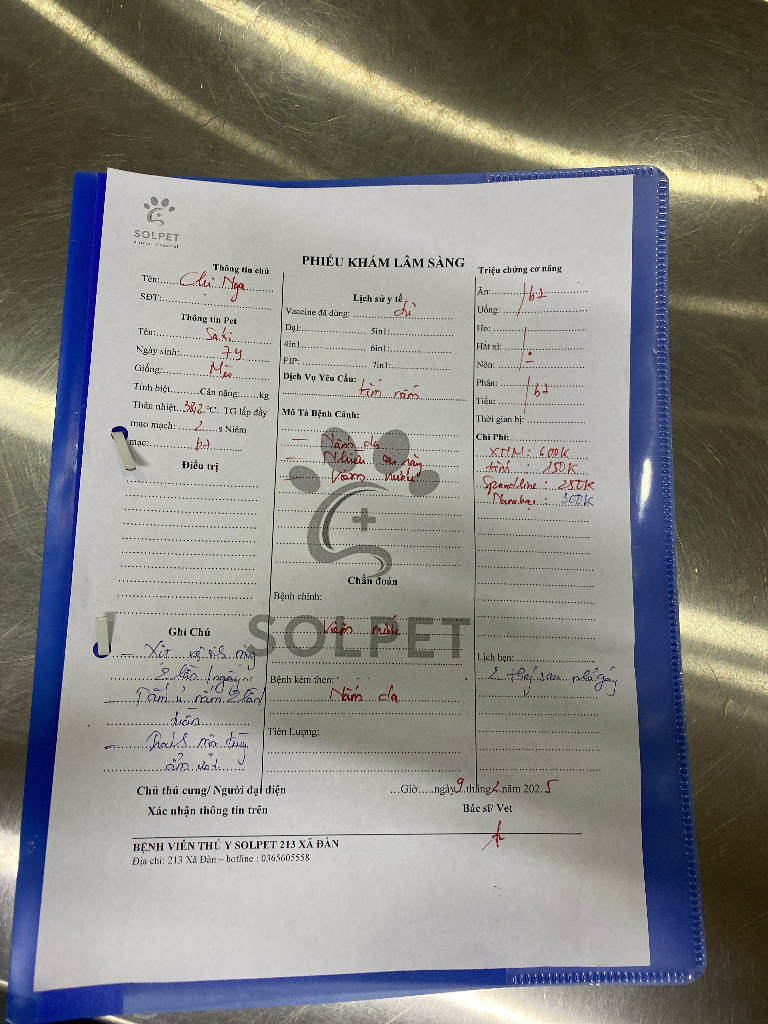 SOLPET
PHIẾU KHÁM LÂM SÀNG
Thông tin chủ
Tên: Chị Nga
SĐT:
Thông tin Pet
Tên: Saki
Ngày sinh: 7y
Giống: Mèo
Tính biệt Cân nặng: kg
Thân nhiệt 38,2 °C. TG lấp đầy
mao mạch: 2 s Niêm
mạc: bt
Điều trị
Ghi Chú
2 lần / ngày
Lịch sử y tế
Vaccine đã dùng:
Dại: 5in1:
4in1 6in1:
FIP: 7in1:
Dịch Vụ Yêu Cầu:
tắm nấm
Mô Tả Bệnh Cảnh:
- Nấm da
- Nhiều
- Viêm nướu
SOLPET
Chẩn đoán
Bệnh chính:
Viêm nướu
Bệnh kèm theo:
Nấm da
Tiên Lượng:
Triệu chứng cơ năng
Ăn: bt
Uống:
Ho:
Hắt xì:
Nôn:
Phân: bt
Tiểu:
Thời gian bị:
Chi Phí:
XTM: 600K
tắm: 150K
: 250K
: 300K
Lịch hẹn:
Chủ thú cưng/ Người đại diện
Xác nhận thông tin trên
...Giờ.....ngày 9 tháng 2 năm 2025
Bác sĩ/ Vet
BỆNH VIỆN THÚ Y SOLPET 213 XÃ ĐÀN
Địa chỉ: 213 Xã Đàn – hotline : 0365605558